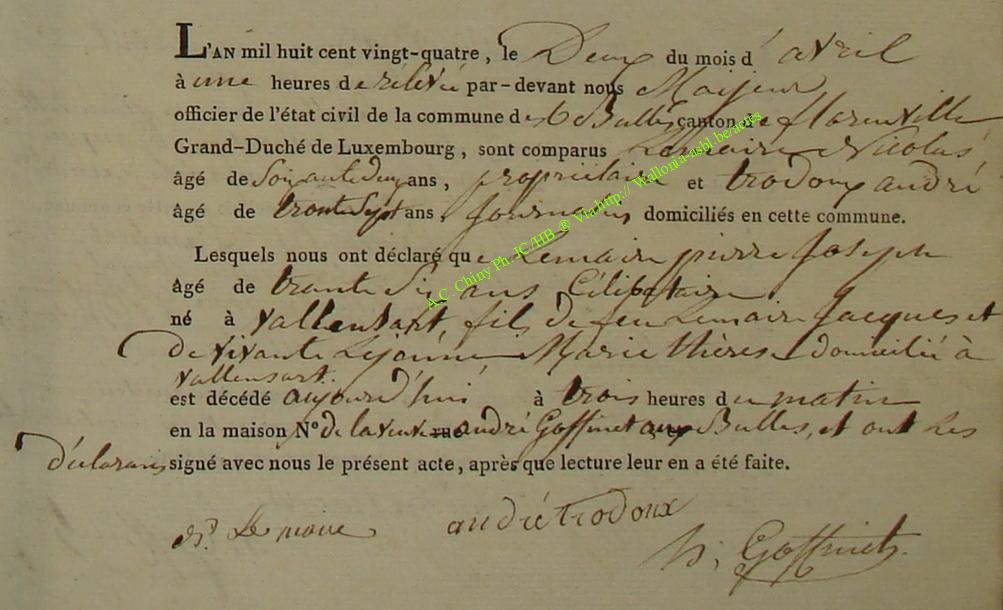 L'AN mil huit cent vingt-quatre, le Deux du mois d' avril
à une heures de rélevée par-devant nous Maÿeur
officier de l'état civil de la commune des Bulles canton de florenville
Grand-Duché de Luxembourg, sont comparus Lemaire Nicolas
âgé de Soixante deux ans, propriétaire et trodoux andré
âgé de trante Sept ans, journa domiciliés en cette commune.
Lesquels nous ont déclaré que Lemaire pierre Joseph
âgé de trante Six ans Célibataire
né à Vallensart, fils de feu Lemaire Jacques et
de vivante Lejeune Marie thérese domicilié à
Vallensart.
est décédé aujourd'hui à trois heures du matin
en la maison N° de la veuve rue andré Goffinet aux Bulles, et ont Les
déclarans signé avec nous le présent acte, après que lecture leur en a été faite.
Lemaire andré trodoux
Goffinet
A.C. Chiny Ph. JC/HB @ Via http:// Wallonia-asbl.be/actes